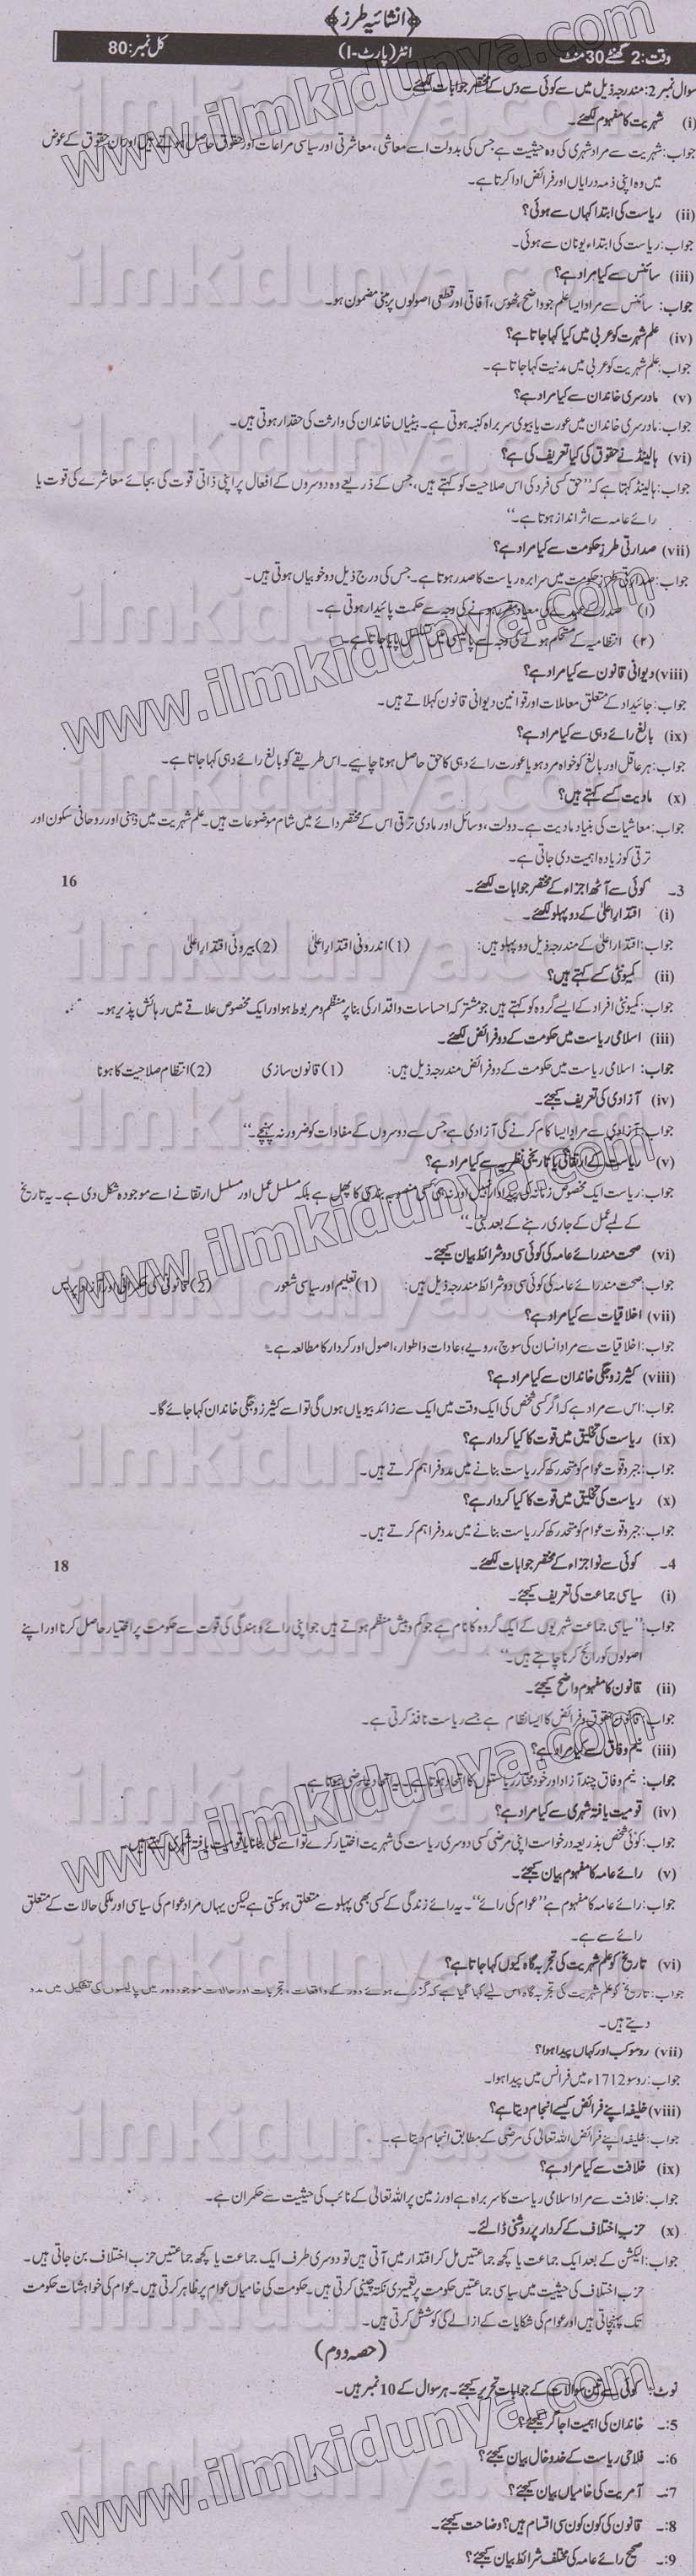 ﴿انشائیہ طرز﴾
وقت: 2 گھنٹے 30 منٹ انٹر (پارٹ-I) کل نمبر: 80
سوال نمبر 2: مندرجہ ذیل میں سے کوئی سے دس کے مختصر جوابات لکھئے۔
(i) شہریت کا مفہوم لکھئے۔
جواب: شہریت سے مراد شہری کی وہ حیثیت ہے جس کی بدولت اسے معاشی، معاشرتی اور سیاسی مراعات اور حقوق حاصل ہوتے ہیں اور ان حقوق کے عوض
میں وہ اپنی ذمہ داریاں اور فرائض ادا کرتا ہے۔
(ii) ریاست کی ابتدا کہاں سے ہوئی؟
جواب: ریاست کی ابتداء یونان سے ہوئی۔
(iii) سائنس سے کیا مراد ہے؟
جواب: سائنس سے مراد ایسا علم جو واضح ٹھوس، آفاقی اور قطعی اصولوں پر مبنی مضمون ہو۔
(iv) علم شہرت کو عربی میں کیا کہا جاتا ہے؟
جواب: علم شہریت کو عربی میں مدنیت کہا جاتا ہے۔
(v) مادرسری خاندان سے کیا مراد ہے؟
جواب: مادرسری خاندان میں عورت یا بیوی سربراہ کنبہ ہوتی ہے۔ بیٹیاں خاندان کی وارثت کی حقدار ہوتی ہیں۔
(vi) ہالینڈ نے حقوق کی کیا تعریف کی ہے؟
جواب: ہالینڈ کہتا ہے کہ ”حق کسی فرد کی اس صلاحیت کو کہتے ہیں، جس کے ذریعے وہ دوسروں کے افعال پر اپنی ذاتی قوت کی بجائے معاشرے کی قوت یا
رائے عامہ سے اثر انداز ہوتا ہے۔“
(vii) صدارتی طرز حکومت سے کیا مراد ہے؟
جواب: صدارتی طرز حکومت میں سرابرہ ریاست کا صدر ہوتا ہے۔ جس کی درج ذیل دو خوبیاں ہوتی ہیں۔
(۱) صدر کے عہدے کی معیاد مقرر ہونے کی وجہ سے حکمت پائیدار ہوتی ہے۔
(۲) انتظامیہ کے مستحکم ہونے کی وجہ سے پالیسی میں پایا جاتا ہے۔
(viii) دیوانی قانون سے کیا مراد ہے؟
جواب: جائیداد کے متعلق معاملات اور قوانین دیوانی قانون کہلاتے ہیں۔
(ix) بالغ رائے دہی سے کیا مراد ہے؟
جواب: ہر عاقل اور بالغ کو خواہ مرد ہو یا عورت رائے دہی کا حق حاصل ہونا چاہیے۔ اس طریقے کو بالغ رائے دہی کہا جاتا ہے۔
(x) مادیت کسے کہتے ہیں؟
جواب: معاشیات کی بنیاد مادیت ہے۔ دولت، وسائل اور مادی ترقی اس کے مختصر دائے میں شام موضوعات ہیں۔ علم شہریت میں ذہنی اور روحانی سکون اور
ترقی کو زیادہ اہمیت دی جاتی ہے۔
3۔ کوئی سے آٹھ اجزاء کے مختصر جوابات لکھئے۔ 16
(i) اقتدار اعلیٰ کے دو پہلو لکھئے۔
جواب: اقتدار اعلیٰ کے مندرجہ ذیل دو پہلو ہیں: (1) اندرونی اقتدار اعلیٰ (2) بیرونی اقتدار اعلیٰ
(ii) کمیونٹی کسے کہتے ہیں؟
جواب: کمیونٹی افراد کے ایسے گروہ کو کہتے ہیں جو مشترکہ احساسات واقدار کی بنا پر منظم و مربوط ہو اور ایک مخصوص علاقے میں رہائش پذیر ہو۔
(iii) اسلامی ریاست میں حکومت کے دو فرائض لکھئے۔
جواب: اسلامی ریاست میں حکومت کے دو فرائض مندرجہ ذیل ہیں: (1) قانون سازی (2) انتظام صلاحیت کا ہونا
(iv) آزادی کی تعریف کیجئے۔
جواب: آزادی سے مراد ایسا کام کرنے کی آزادی ہے جس سے دوسروں کے مفادات کو ضرور نہ پہنچے۔“
(v) ریاست کے ارتقائی یا تاریخی نظریہ سے کیا مراد ہے؟
جواب: ریاست ایک مخصوص زمانہ کی پیداوار نہیں اور نہ ہی کسی منصوبہ بندی کا پھل ہے بلکہ مسلسل عمل اور مسلسل ارتقا نے اسے موجودہ شکل دی ہے۔ یہ تاریخ
کے لمبے عمل کے جاری رہنے کے بعد بنی۔“
(vi) صحت مند رائے عامہ کی کوئی سی دو شرائط بیان کیجئے۔
جواب: صحت مند رائے عامہ کی کوئی سی دو شرائط مندرجہ ذیل ہیں: (1) تعلیم اور سیاسی شعور (2) قانونی کی حکمرانی اور آزاد پریس
(vii) اخلاقیات سے کیا مراد ہے؟
جواب: اخلاقیات سے مراد انسان کی سوچ، رویے، عادات و اطوار، اصول اور کردار کا مطالعہ ہے۔
(viii) کثیر زوجگی خاندان سے کیا مراد ہے؟
جواب: اس سے مراد ہے کہ اگر کسی شخص کی ایک وقت میں ایک سے زائد بیویاں ہوں گی تو اسے کثیر زوجگی خاندان کہا جائے گا۔
(ix) ریاست کی تخلیق میں قوت کا کیا کردار ہے؟
جواب: جبر و قوت عوام کو متحد رکھ کر ریاست بنانے میں مدد فراہم کرتے ہیں۔
(x) ریاست کی تخلیق میں قوت کا کیا کردار ہے؟
جواب: جبر و قوت عوام کو متحد رکھ کر ریاست بنانے میں مدد فراہم کرتے ہیں۔
4۔ کوئی سے نو اجزاء کے مختصر جوابات لکھئے۔ 18
(i) سیاسی جماعت کی تعریف کیجئے۔
جواب: ”سیاسی جماعت شہریوں کے ایک گروہ کا نام ہے جو کم و بیش منظم ہوتے ہیں جو اپنی رائے و ہندگی کی قوت سے حکومت پر اختیار حاصل کرنا اور اپنے
اصولوں کو رائج کرنا چاہتے ہیں۔“
(ii) قانون کا مفہوم واضح کیجئے۔
جواب: قانون حقوق و فرائض کا ایسا نظام ہے جسے ریاست نافذ کرتی ہے۔
(iii) نیم وفاق سے کیا مراد ہے؟
جواب: نیم وفاق چند آزاد اور خود مختار ریاستوں کا اتحاد ہوتا ہے۔ یہ اتحاد عارضی ہوتا ہے۔
(iv) قومیت یافتہ شہری سے کیا مراد ہے؟
جواب: کوئی شخص بذریعہ درخواست اپنی مرضی کسی دوسری ریاست کی شہریت اختیار کرے تو اسے ملی بنانا یا قومیت یافتہ شہری کہتے ہیں۔
(v) رائے عامہ کا مفہوم بیان کیجئے۔
جواب: رائے عامہ کا مفہوم ہے ”عوام کی رائے“۔ یہ رائے زندگی کے کسی بھی پہلو سے متعلق ہو سکتی ہے لیکن یہاں مراد عوام کی سیاسی اور ملکی حالات کے متعلق
رائے سے ہے۔
(vi) تاریخ کو علم شہریت کی تجربہ گاہ کیوں کہا جاتا ہے؟
جواب: تاریخ کو علم شہریت کی تجربہ گاہ اس لیے کہا گیا ہے کہ گزرے ہوئے دور کے واقعات، تجربات اور حالات موجود دور میں پالیسوں کی تشکیل میں مدد
دیتے ہیں۔
(vii) روسو کب اور کہاں پیدا ہوا؟
جواب: روسو 1712ء میں فرانس میں پیدا ہوا۔
(viii) خلیفہ اپنے فرائض کیسے انجام دیتا ہے؟
جواب: خلیفہ اپنے فرائض اللہ تعالیٰ کی مرضی کے مطابق انجام دیتا ہے۔
(ix) خلافت سے کیا مراد ہے؟
جواب: خلافت سے مراد اسلامی ریاست کا سربراہ ہے اور زمین پر اللہ تعالیٰ کے نائب کی حیثیت سے حکمران ہے۔
(x) حزب اختلاف کے کردار پر روشنی ڈالئے۔
جواب: الیکشن کے بعد ایک جماعت یا کچھ جماعتیں مل کر اقتدار میں آتی ہیں تو دوسری طرف ایک جماعت یا کچھ جماعتیں حزب اختلاف بن جاتی ہیں۔
حزب اختلاف کی حیثیت میں سیاسی جماعتیں حکومت پر تعمیری نکتہ چینی کرتی ہیں۔ حکومت کی خامیاں عوام پر ظاہر کرتی ہیں۔ عوام کی خواہشات حکومت
تک پہنچاتی ہیں اور عوام کی شکایات کے ازالے کی کوشش کرتی ہیں۔
(حصہ دوم)
نوٹ: کوئی سے تین سوالات کے جوابات تحریر کیجئے۔ ہر سوال کے 10 نمبر ہیں۔
5:۔ خاندان کی اہمیت اجاگر کیجئے؟
6:۔ فلاحی ریاست کے خدوخال بیان کیجئے؟
7:۔ آمریت کی خامیاں بیان کیجئے؟
8:۔ قانون کی کون کون سی اقسام ہیں؟ وضاحت کیجئے۔
9:۔ صحیح رائے عامہ کی مختلف شرائط بیان کیجئے؟
www.ilmkidunya.com